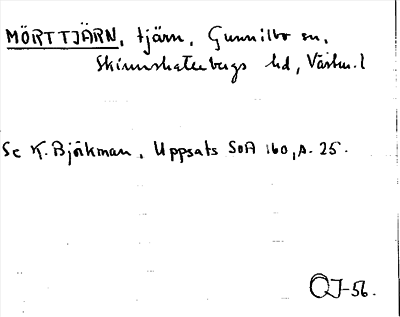 MÖRTTJÄRN, tjärn, Gunnilbo sn,
Skinnskattebergs hd, Västm. l
Se K. Björkman, Uppsats SOA 160, s. 25.
OJ-56.